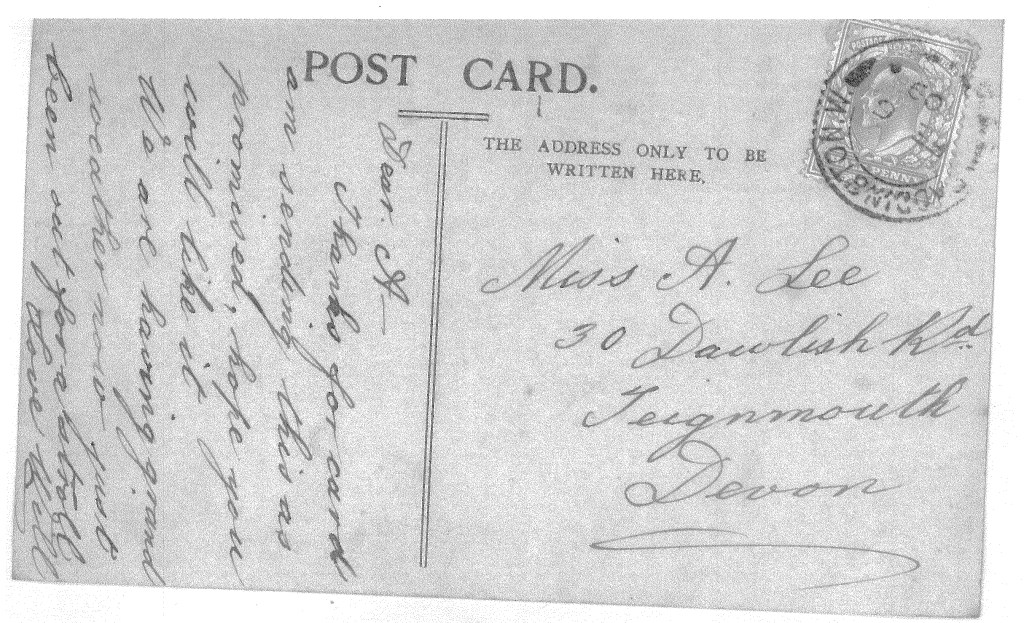 POST CARD.
THE ADDRESS ONLY TO BE
WRITTEN HERE.
Dear. A
Thanks for card
am sending this as
promised, hope you
will like it
We are having grand
weather now just
been out for a stroll
Love Nell
Miss A. Lee
30 Dawlish Rd.
Teignmouth
Devon
POSTAGE
PENNY